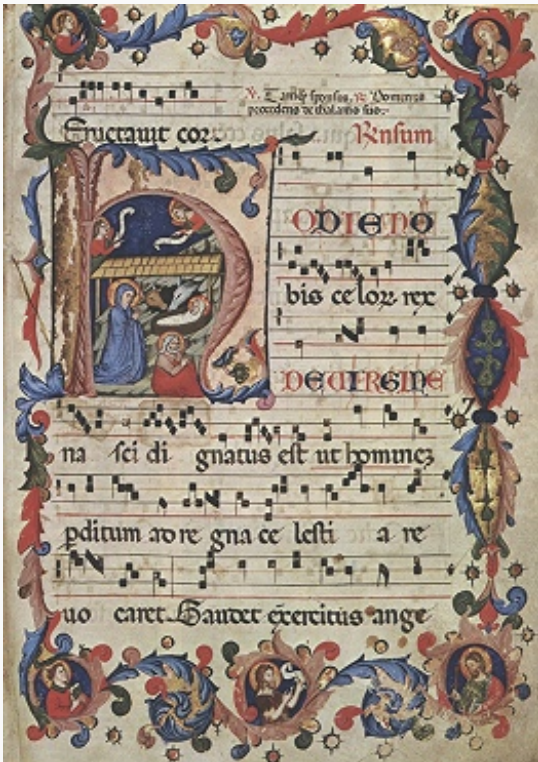 ℣. Tanq̄ sponsus. ℟. Domin9
procedens de thalamo suo.
Eructauit cor.
Rnsum
HODIE NO
bis celoꝝ rex
DE UIRGINE
na sci di gnatus est ut hominez
pditum ad re gna ce lesti a re
uo caret. Gaudet exercitus ange